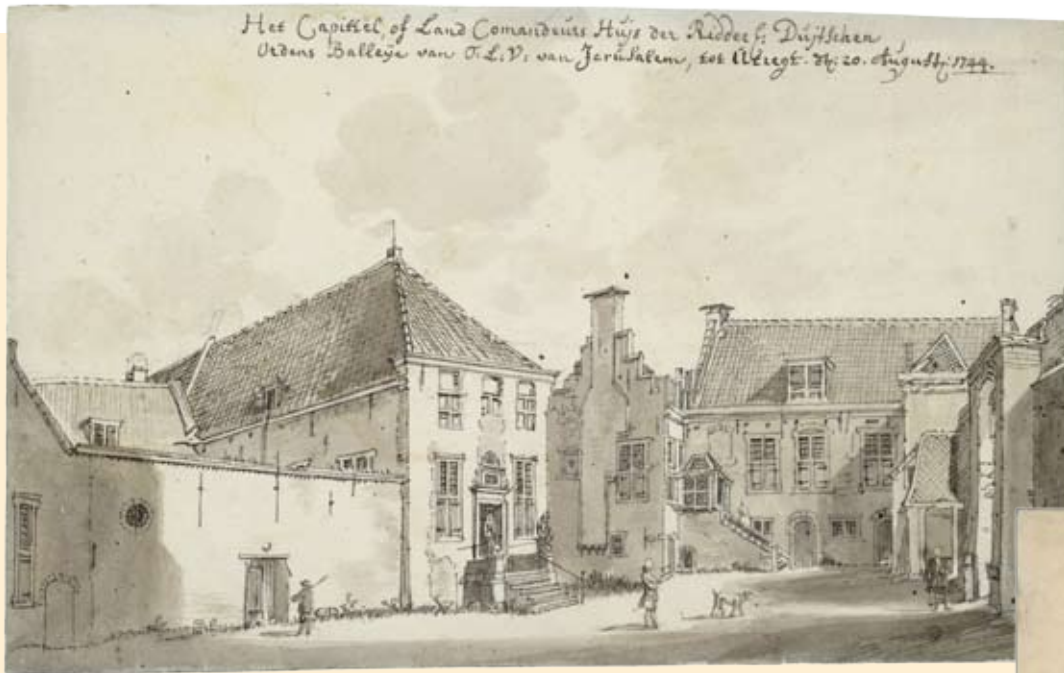 Het Capittel, of Land Comandeurs Huijs der Ridderl: Duijtschen
Ordens Balleye van O.L.V: van Jerusalem, tot Utregt. den: 20. Augusti: 1744.